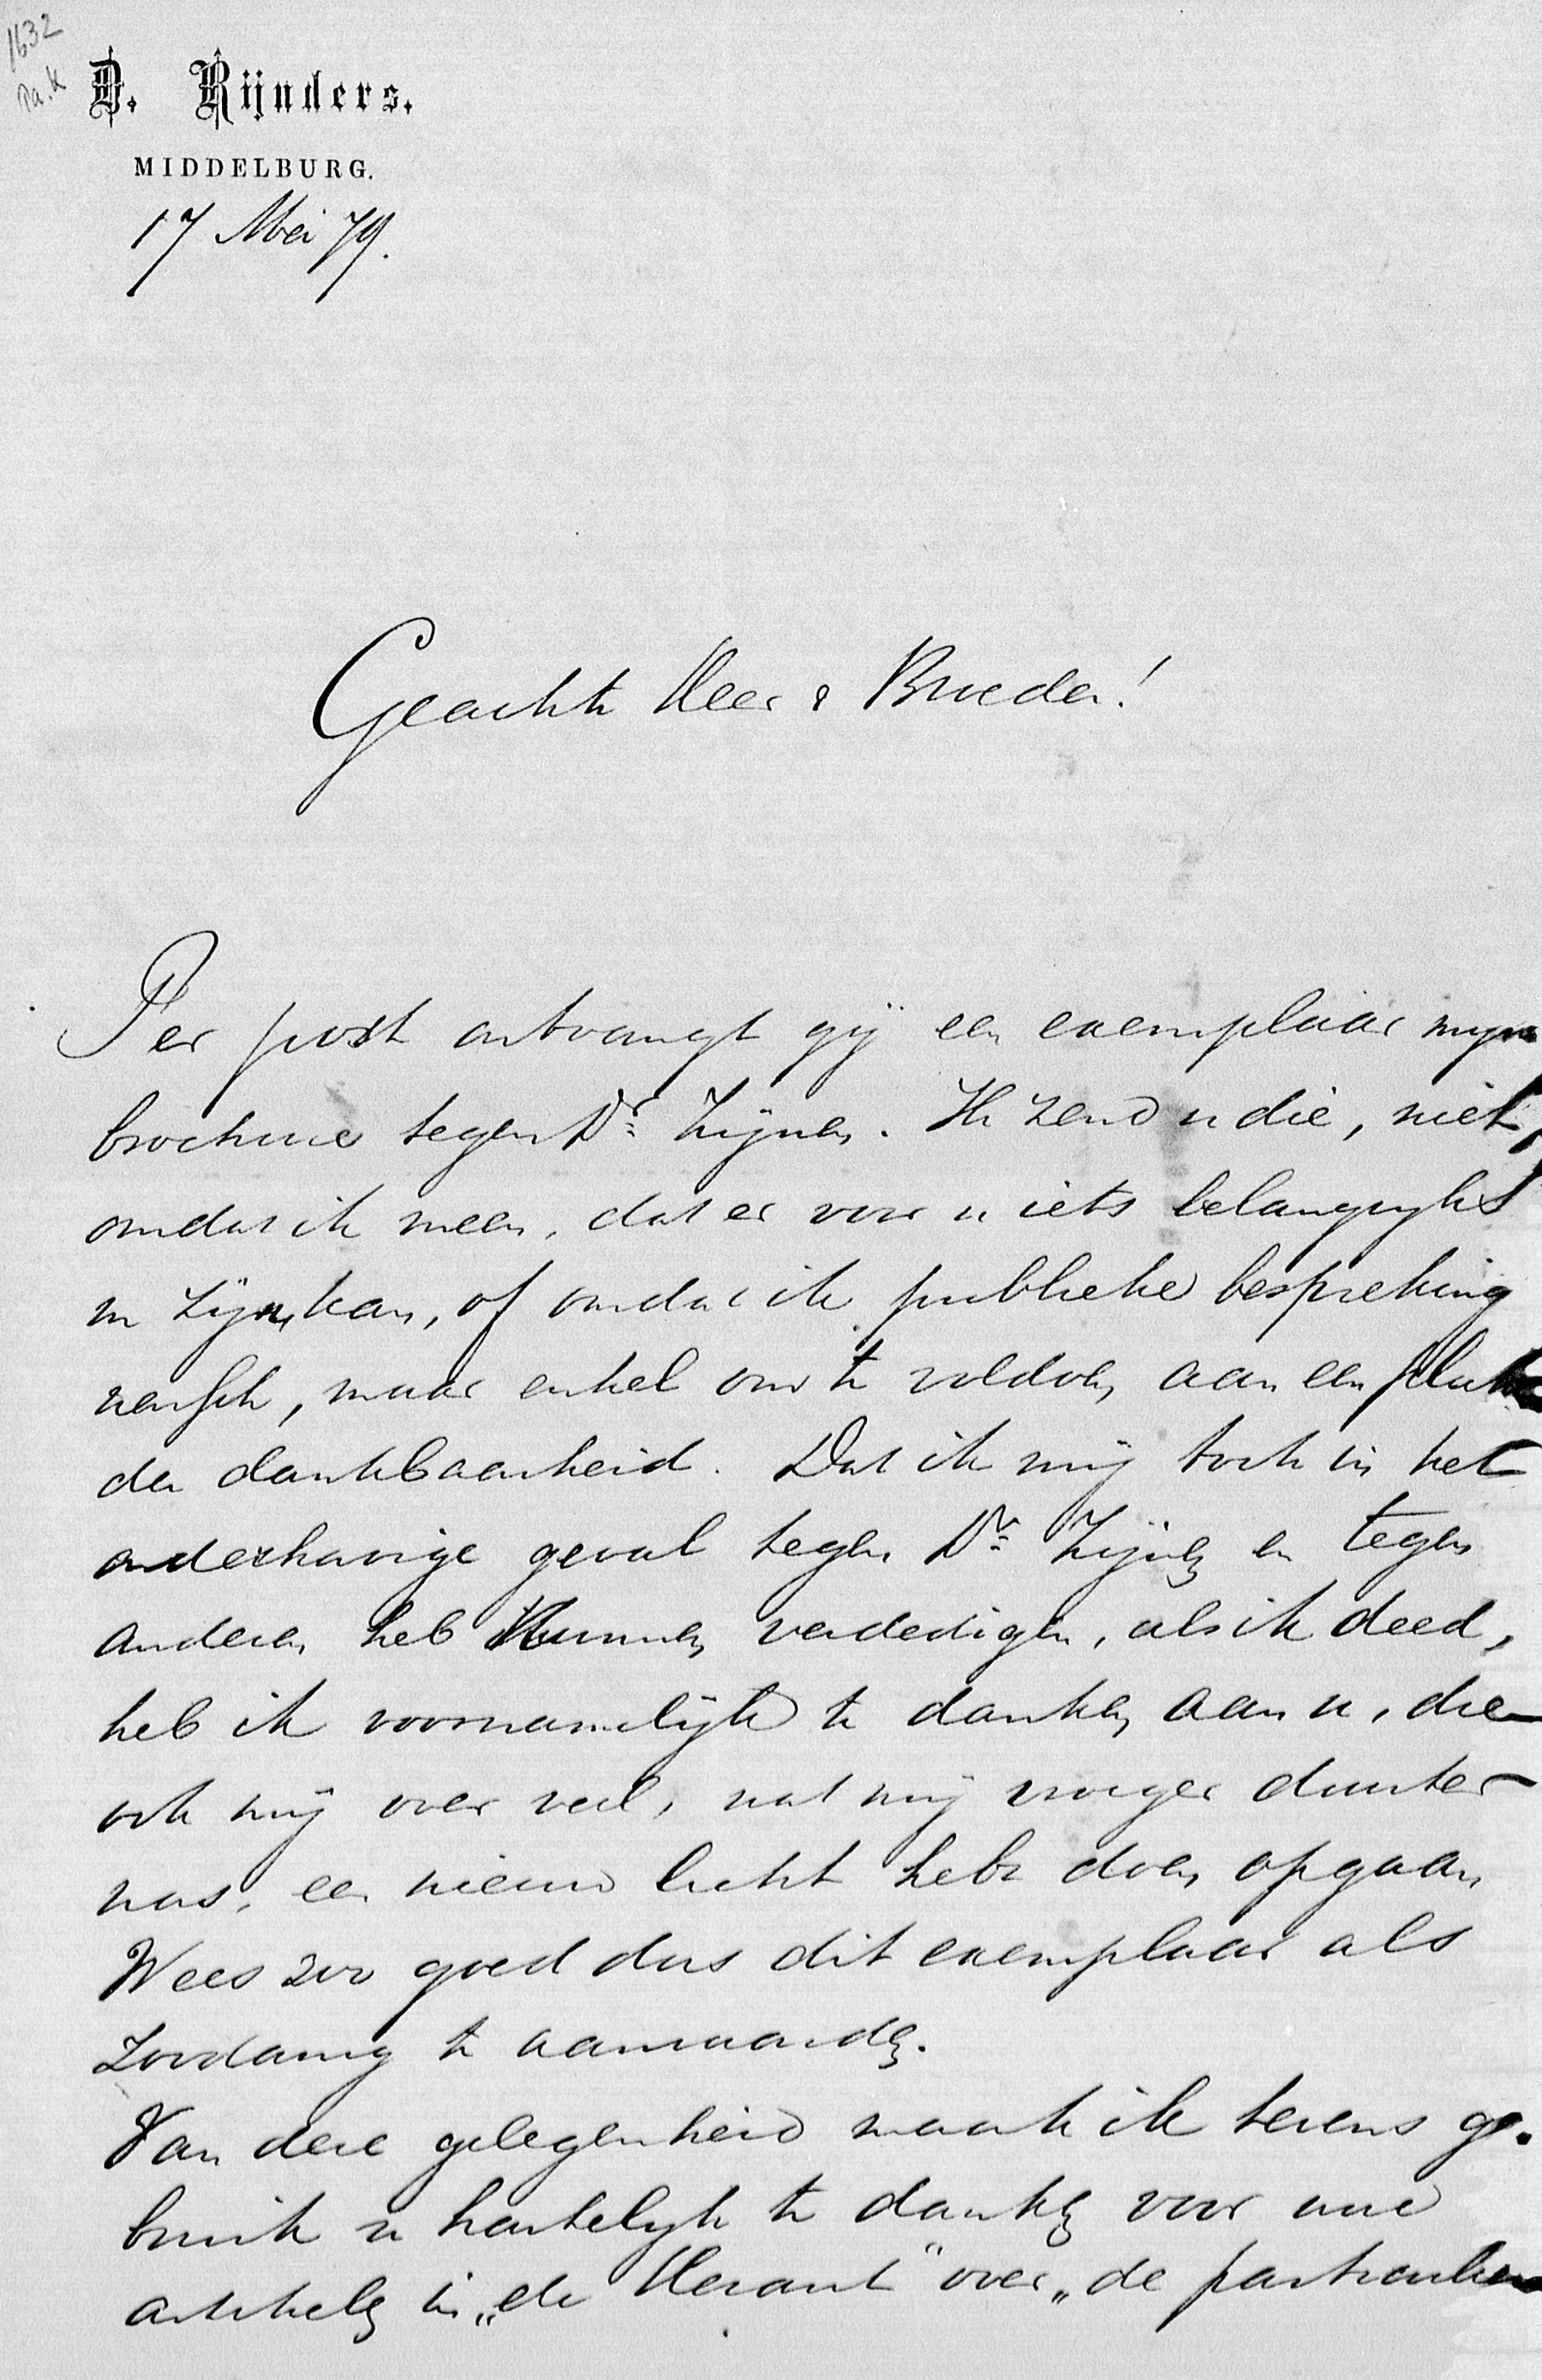 1632
Pa. K
D. Rijnders.
MIDDELBURG.
17 Mei 79.
Geachte Heer & Broeder!
Per post ontvangt gij een exemplaar mijn
brochure tegen Dr. Zijnen. Ik zend u die, niet,
omdat ik meen, dat er voor u iets belangrijks
in zijn kan, of omdat ik publieke bespreking
wensch, maar enkel om te voldoen aan een plicht
der dankbaarheid. Dat ik mij toch in het
onderhavige geval tegen Dr. Zijnen en tegen
anderen heb kunnen verdedigen, als ik deed,
heb ik voornamelijk te danken aan u, die
ook mij over veel, wat mij vroeger duister
was, een nieuw licht hebt doen opgaan
Wees zoo goed dus dit exemplaar als
zoodanig te aanvaarden.
Van deze gelegenheid maak ik tevens ge-
bruik u hartelijk te danken voor uwe
artikelen in „de Heraut" over „de particuliere